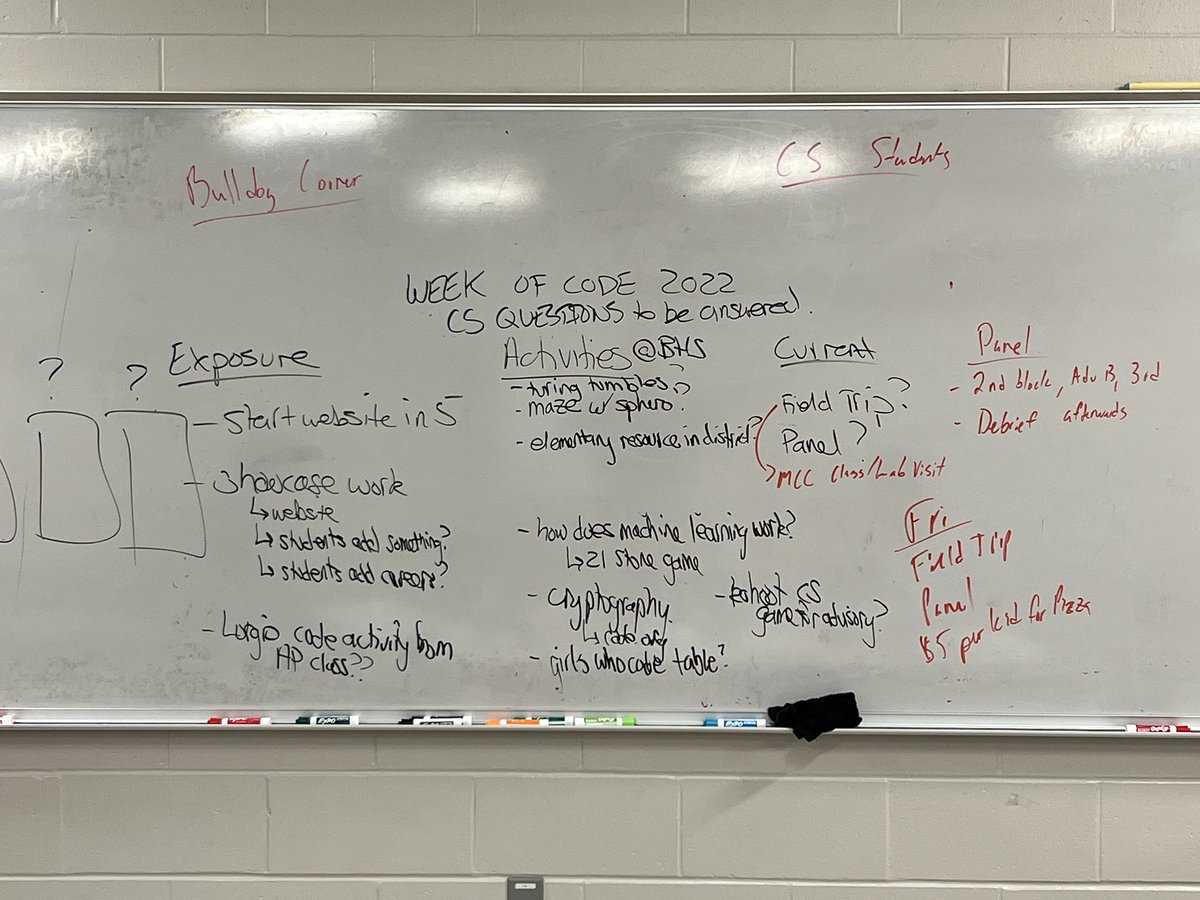 Bulldog Corner
CS Students
WEEK OF CODE 2022
CS QUESTIONS to be answered.
? ?
Exposure
- Start website in 5
- Showcase work
↳ website
↳ students add something?
↳ students add careers?
- code activity from
AP class??
Activities @BHS
- turing tumbles?
- maze w/ sphero?
- elementary resource in district?
- how does machine learning work?
↳ 21 stone game
- cryptography
↳ code
- girls who code table?
- kahoot CS
game for advisory?
Current
Field Trip?
Panel?
MCC Class/Lab Visit
Panel
- 2nd block, Adv B, 3rd
- Debrief afterwards
Fri
Field Trip
Panel
$5 per kid for Pizza
EXPO
EXPO
EXPO